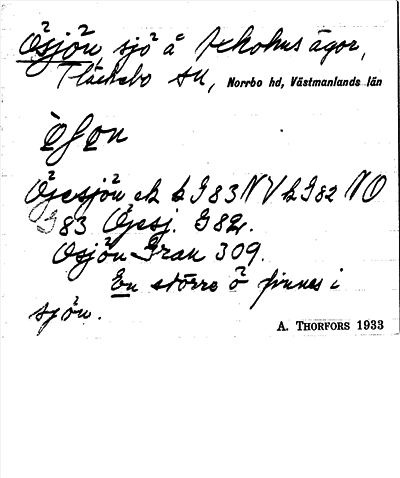 Ösjön sjö å Ekohns ägor,
Fläckebo sn, Norrbo hd, Västmanlands län
Öjesjön ek k G83 NV k G82 NO
G83 Öjesj. G82.
Osjön Gran 309.
En större ö finnes i
sjön.
A. THORFORS 1933